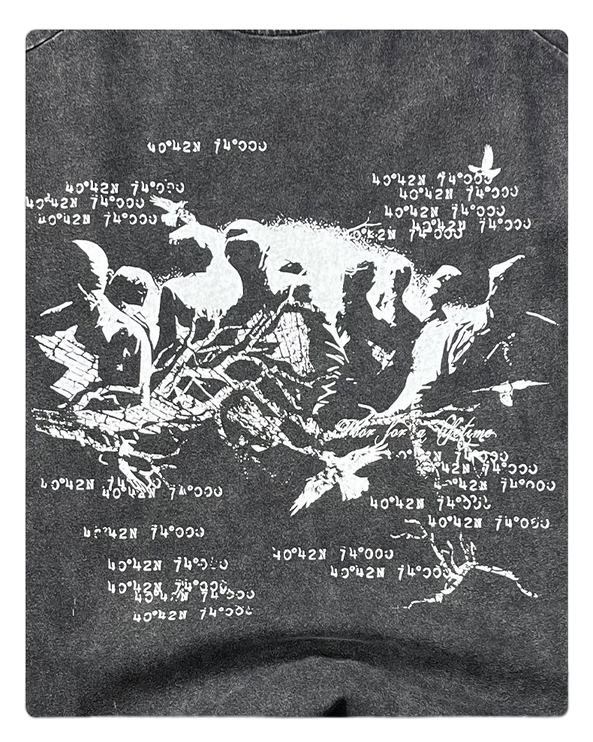 40°42N 74°000
40°42N 74°000
40°42N 74°000
40°42N 74°000
40°42N 74°000
40°42N 74°000
40°42N 74°000
40°42N 74°000
42N 74°000
for a lifetime
42N 74°000
40°42N
40°42N 74°000
42N 74°000
40°42N 74°000
40°42N 74°000
42N 74°000
40°42N 74°000
40°42N 74°000
40°42N 74°000
40°42N 74°000
74°000
40°42N 74°000